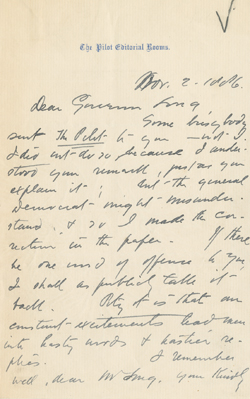 The Pilot Editorial Rooms.
Nov. 2 - 1886.
Dear Governor Long
Some busybody
sent The Pilot to you — not I.
I did not do so, because I under-
stood your remark, just as you
explain it; but the general
democrat might misunder-
stand, & so I made the cor-
rection in the paper. If there
be one word of offence to you
I shall as publicly take it
back. Pity it is that our
constant excitements lead men
into hasty words & hastier re-
plies. I remember
well, dear Mr Long, your kindly